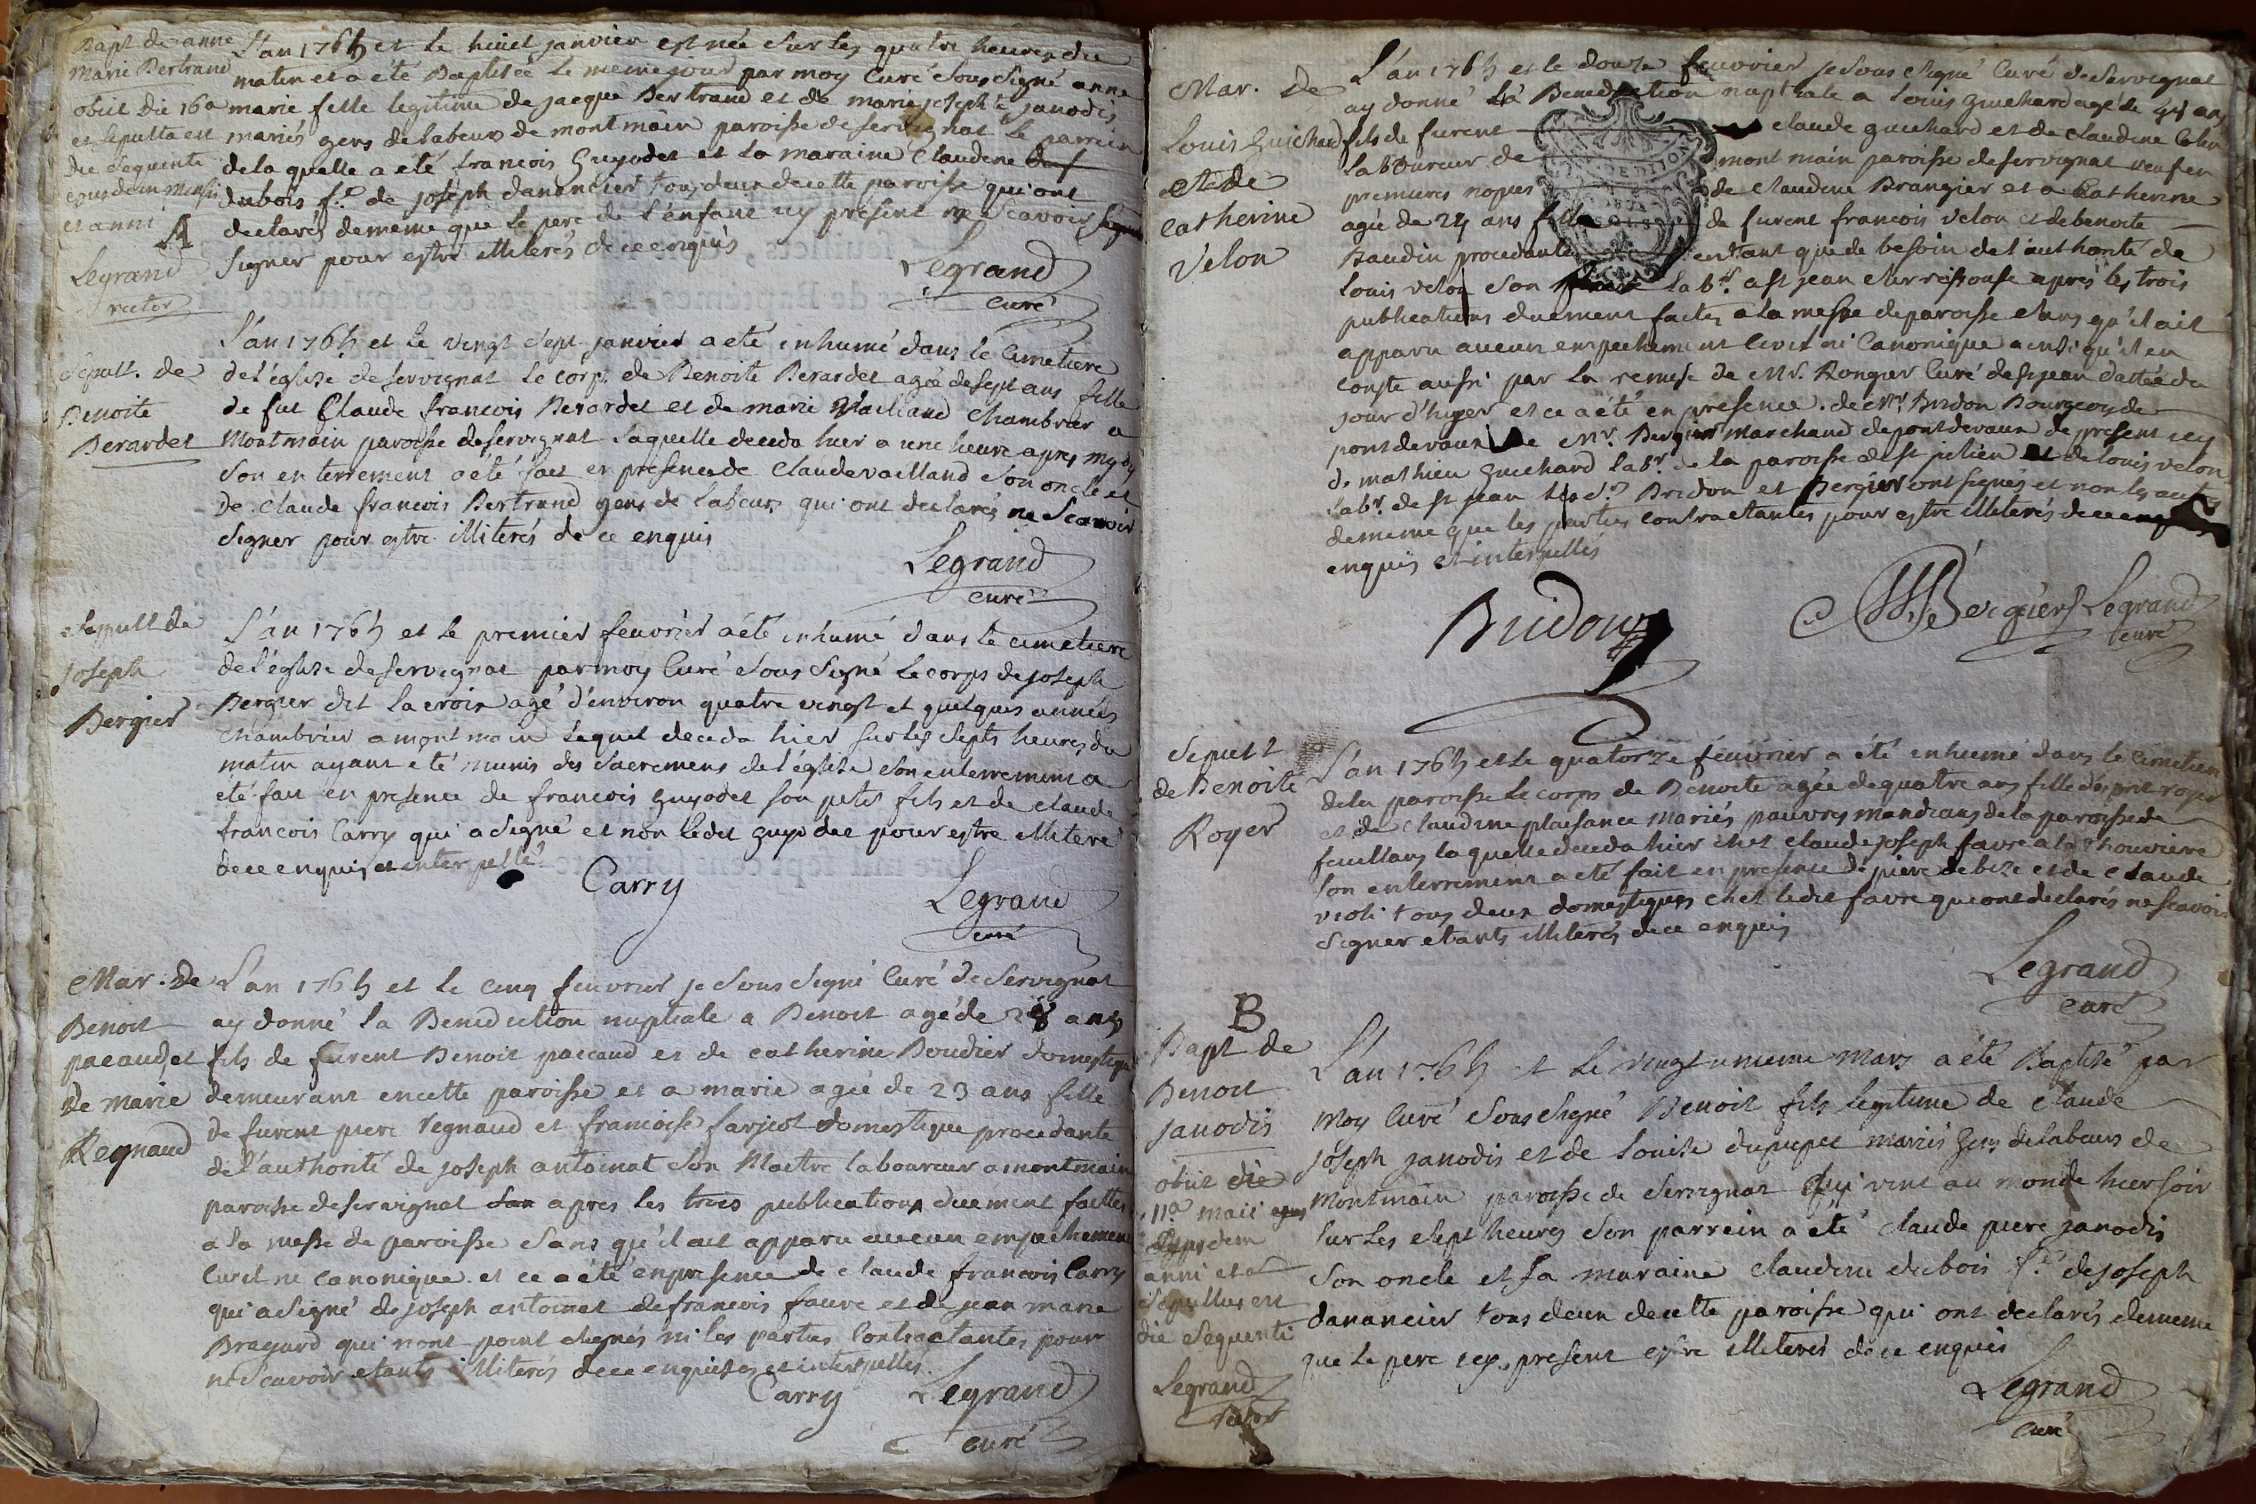 Bapt de anne
Marie Bertrand
obiit die 16a
et sepulta est
die sequenti
ejusdem mensis
et anni
A
Legrand
rector
L'an 1765 et le huict janvier est née sur les quatre heures du
matin et a été Baptisée le meme jour par moy Curé sous signé anne
marie fille legitime de jacque Bertrand et de marie josephte janodis
mariés gens de labeur de montmain paroisse de servignat le parrein
de la quelle a été francois Guyodet et la maraine Claudine
dubois f.e de joseph danancier tous deux de cette paroisse qui ont
declarés de meme que le pere de l'enfant icy présent ne scavoir
signer pour estre illiterés de ce enquis
Legrand
curé
Sepult. de
Benoite
Berardet
L'an 1765 et le vingt sept janvier a été inhumé dans le Cimetiere
de l'église de servignat le corps de Benoite Berardet agée de sept ans fille
de fut Claude francois Berardet et de marie Vailliand Chambrier a
Montmain paroisse de servignat laquelle deceda hier a une heure apres mydy
son enterrement a été fait en présence de Claude vailland son oncle et
de Claude francois Bertrand gens de labeurs qui ont declarés ne scavoir
signer pour estre illiterés de ce enquis
Legrand
curé
Sepult de
joseph
Bergier
L'an 1765 et le premier feuvrier a été inhumé dans le cimetiere
de l'église de servignat par moy Curé sous signé le corps de joseph
Bergier dit lacroix agé d'environ quatre vingt et quelques années
Chambrier a montmain lequel deceda hier sur les septs heures du
matin ayant été munis des sacremens de l'église son enterrement a
été fait en presence de francois guyodet son petit fils et de claude
francois Carry qui a signé et non ledit guyodet pour estre illiteré
de ce enquis et interpellé
Carry
Legrand
curé
Mar. de
Benoit
pacaud et
de marie
Regnaud
L'an 1765 et le cinq feuvrier je sous signé Curé de Servignat
ay donné la Benediction nuptiale a Benoit agé de 28 ans
fils de furent Benoit paccaud et de catherine Boudier domestique
demeurant en cette paroisse et a marie agée de 23 ans fille
de furent piere regnaud et francoise farjeot domestique procedante
de l'authorité de joseph antoinat son Maitre laboureur a montmain
paroisse de servignat apres les trois publications duement faittes
a la messe de paroisse sans qu'il ait apparu aucun empechement
Civil ni canonique et ce a été en presence de claude francois Carry
qui a signé de joseph antoinat de francois favre et de jean marie
Brayard qui n'ont point signés ni les parties Contractantes pour
ne scavoir etants illiterés de ce enquises et interpellés.
Carry
Legrand
curé
Mar. de
Louis Guichard
et de
catherine
Velon
L'an 1765 et le douze feuvrier je sous signé Curé de servignat
ay donné la Benediction nuptiale a louis guichard agé de 44 ans
fils de furent claude guichard et de claudine
laboureur de montmain paroisse de servignat veuf en
premieres nopces de claudine Brangier et a Catherine
agée de 24 ans fille de furent francois velon et de benoite
Baudin procedante entant que de besoin de l'authorité de
louis velon son labr. a st jean sur ressouse après les trois
publications duement faites a la messe de paroisse sans qu'il ait
apparu aucun empechement Civil ni Canonique ainsi qu'il en
conste aussi par la remise de Mr. Rongier Curé de st jean dattée du
jour d'hyer et ce a été en presence de Mr. Bridon Bourgeoy de
pontdevaux de Mr. Bergier marchand de pontdevaux de present icy
d. mathieu guichard labr. de la paroisse de st julien et de louis velon
labr. de st jean Bridon et Bergier ont signés et non les autres
de meme que les parties contractantes pour estre illiterés de ce
enquis et interpellés
Bridon
Bergier
Legrand
curé
Sepult
de Benoite
Royer
L'an 1765 et le quatorze feuvrier a été inhumé dans le Cimetiere
de la paroisse le corps de Benoite agée de quatre ans fille d'esprit royer
et de Claudine plaisance mariés pauvres mendians de la paroisse de
feuillans laquelle deceda hier chet claude joseph favre a la
son enterrement a été fait en presence de piere debize et de claude
violi tous deux domestiques chet ledit favre qui ont declarés ne scavoir
signer etants illiterés de ce enquis
Legrand
curé
B
Bapt de
Benoit
janodis
obiit die
11a maii
ejusdem
anni et
sepultus est
die sequenti
Legrand
rector
L'an 1765 et le vingt unieme mars a été Baptisé par
moy Curé sous signé Benoit fils legitime de claude
joseph janodis et de louise dupupet mariés gens de labeurs de
montmain paroisse de servignat qui vint au monde hier soir
sur les sept heures son parrein a été claude piere janodis
son oncle et sa maraine claudine dubois f.e de joseph
danancier tous deux de cette paroisse qui ont declarés de meme
que le pere icy present estre illiterés de ce enquis
Legrand
Curé